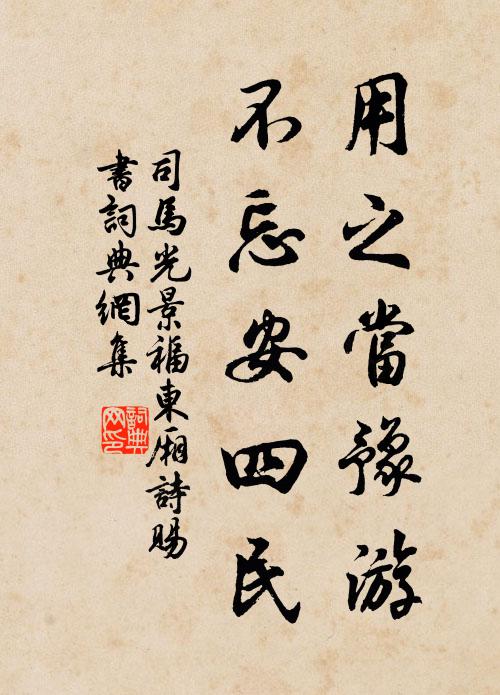 用之當豫游
不忘安四民
司馬光景福東廂詩賜
書詞典網集
詞典网印